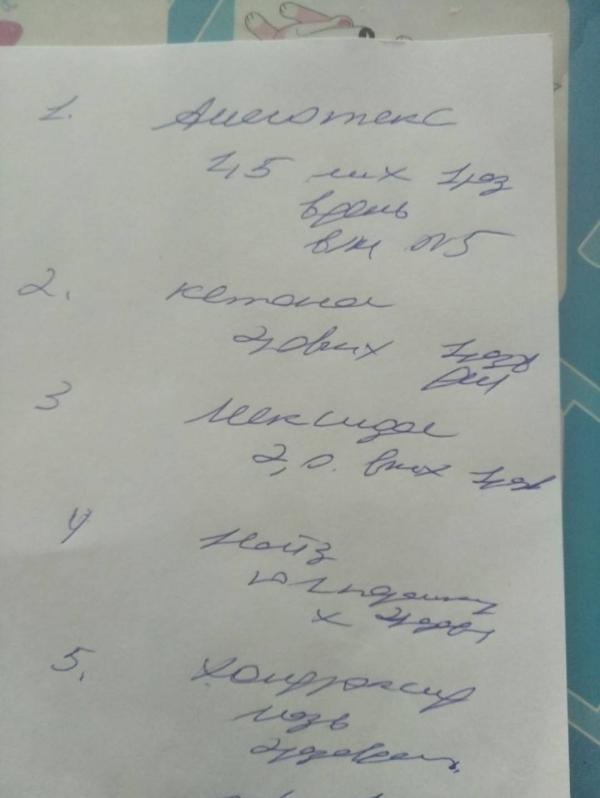 1. Амелотекс
1,5 мл х 1 раз
в день
в/м №5
2. Кетонал
2,0 в/м х 1 раз
день
3 Мексидол
2,0. в/м х 1 раз
4 Найз
х 2 раза
5. Хондроксид
мазь
2 раза в день